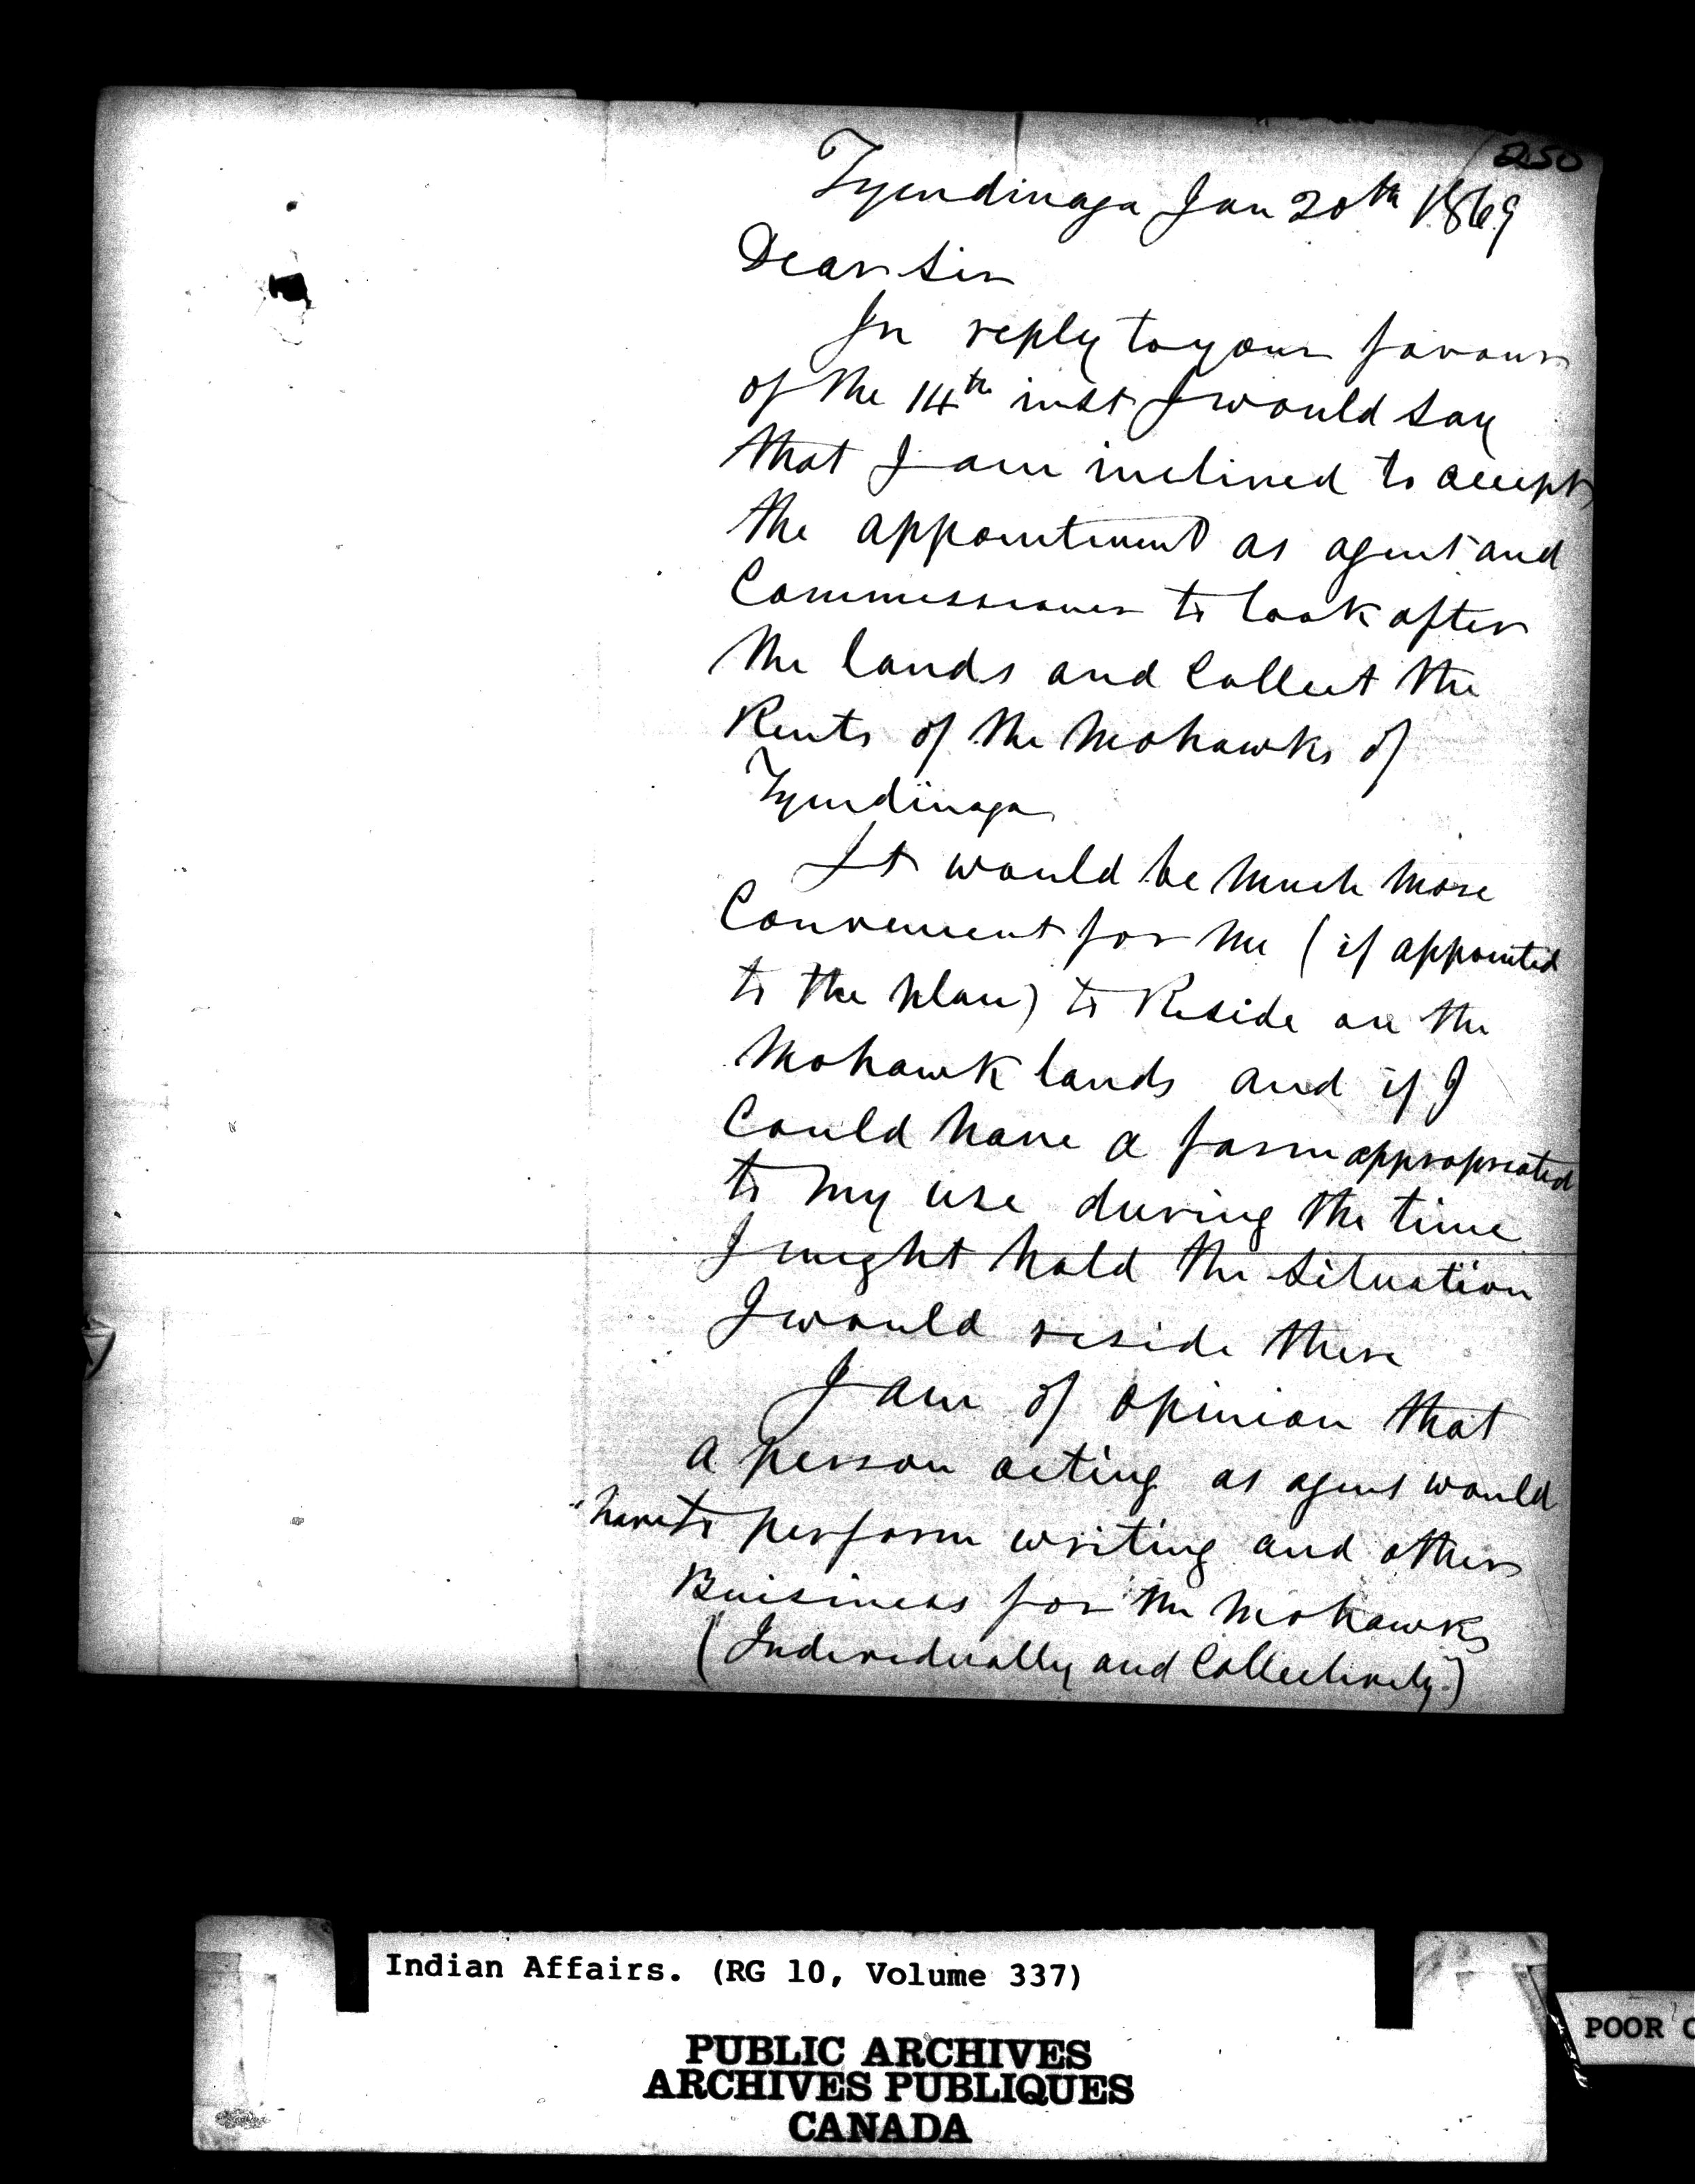 250
Tyendinaga Jan 20th 1869
Dear Sir
In reply to your favour
of the 14th inst I would say
that I am inclined to accept
the appointment as agent and
Commissioner to look after
the lands and Collect the
Rents of the Mohawks of
Tyendinaga
It would be much more
Convenient for me (if appointed
to the place) to Reside on the
Mohawk lands and if I
Could have a farm appropriated
to my use during the time
I might hold the situation
I would reside there
I am of opinion that
a person acting as agent would
have to perform writing and other
Buisiness for the Mohawks
(Individually and Collectively)
Indian Affairs. (RG 10, Volume 337)
PUBLIC ARCHIVES
ARCHIVES PUBLIQUES
CANADA
POOR